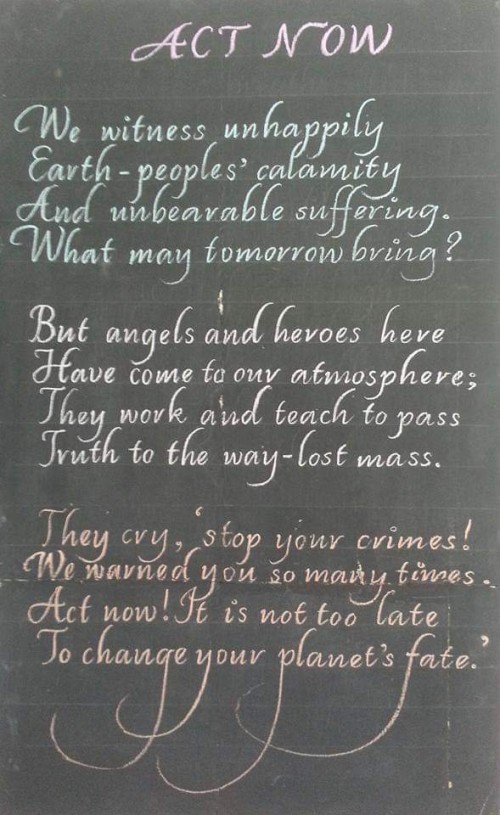 ACT NOW
We witness unhappily
Earth-peoples' calamity
And unbearable suffering.
What may tomorrow bring?
But angels and heroes here
Have come to our atmosphere;
They work and teach to pass
Truth to the way-lost mass.
They cry, 'stop your crimes!
We warned you so many times.
Act now! It is not too late
To change your planet's fate.'